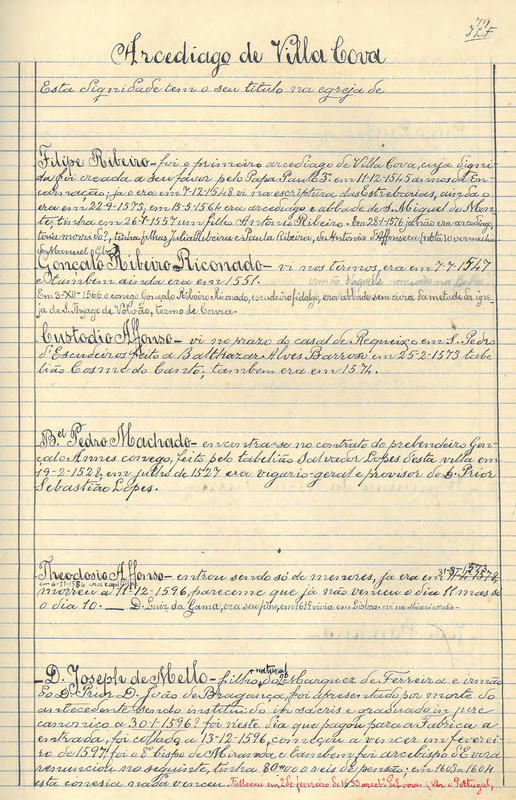 79
Arcediago de Villa Cova
Esta dignidade tem o seu titulo na egreja de
Filipe Ribeiro – foi o primeiro arcediago de Villa Cova, cuja digni-
da foi creada a seu favor pelo Papa Paulo 3º em 11-12-1545 annos da En-
carnação; ja o era em 7-12-1548 vi na escriptura das Estrebarias, ainda o
era em 22-9-1573, em 13-5-1564 era arcediago e abbade de S. Miguel do Mon-
te, tinha em 26-7-1557 um filho Antonio Ribeiro. Em 1576 já não era arcediago,
teria morrido?, tinha filhas Julia Ribeira e Paula Ribeira, de Antonia d'Affonseca (nota) o vermelho
de Manuel
Gonçalo Ribeiro Riconado – vi nos termos, era em 7-7-1547
e tambem ainda era em 1551.
Em 3-XII-1566 o conego Gonçalo Ribeiro Riconado, escudeiro fidalgo, era abbade sem cura da metade da igre-
ja de S. Thyago de Volvão, termo de Coura.
Custodio Affonso – vi no prazo do casal de Requeixo em S. Pedro
d'Escudeiros feito a Balthazar Alves Barroso em 25-2-1573 tabel-
lião Cosme do Canto; tambem era em 1574.
B.el Pedro Machado – encontra-se no contrato do prebendeiro Gon-
çalo Annes conego, feito pelo tabelião Salvador Lopes desta villa em
19-2-1528, em julho de 1527 era vigario-geral e provisor do D. Prior
Sebastião Lopes.
Theodosio Affonso – entrou sendo só de menores, ja era em
morreu a 11-12-1596, pareceme que já não venceu o dia 11 mas só
o dia 10. — D. Luiz da Gama, era seu filho, em 1619 vivia em Lisboa – vi na Misericordia –
– D. Joseph de Mello – filho natural do 2º Marquez de Ferreira e irmão
do D. Prior D. João de Bragança, foi apresentado por morte do
antecedente sendo instituido in sacris e graduado in jure
canonico a 30-1-1596? foi neste dia que pagou para a Fabrica a
entrada, foi collado a 13-12-1596, começou a vencer em feverei-
ro de 1597, foi o 8º bispo de Miranda e tambem foi arcebispo d'Evora
renunciou no seguinte, tinha 80$000 reis de pensão; em 1603 a 1604
esta conesia nada venceu. Falleceu em 2 de fevereiro de 1633 arceb.º d'Evora.